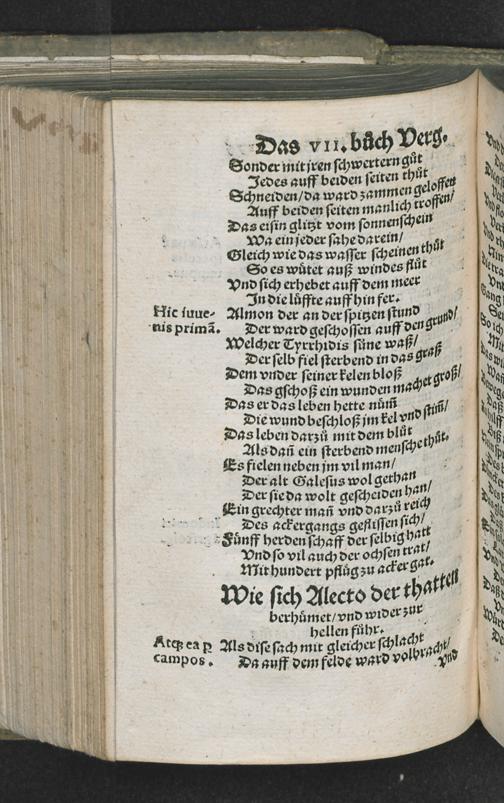 Das VII. bůch Verg.
Sonder mit jren schwertern gůt
Jedes auff beiden seiten thůt
Schneiden/da ward zammen geloffen
Auff beiden seiten manlich troffen/
Das eisin glitzt vom sonnenschein
Wa ein jeder sahe darein/
Gleich wie das wasser scheinen thůt
So es wůtet auß windes flůt
Vnd sich erhebet auff dem meer
In die lüffte auff hin fer.
Hic iuue-
nis primã.
Almon der an der spitzen stund
Der ward geschossen auff den grund/
Welcher Tyrrhidis süne waß/
Der selb fiel sterbend in das graß
Dem vnder seiner kelen bloß
Das gschoß ein wunden machet groß/
Das er das leben hette nüm̃
Die wund beschloß jm kel vnd stim̃/
Das leben darzů mit dem blůt
Als dañ ein sterbend mensche thůt.
Es fielen neben jm vil man/
Der alt Galesus wol gethan
Der sie da wolt gescheiden han/
Ein grechter mañ vnd darzů reich
Des ackergangs geflissen sich/
Fünff herden schaff der selbig hatt
Vnd so vil auch der ochsen trat/
Mit hundert pflüg zu acker gat.
Wie sich Alecto der thatten
berhümet/vnd wider zur
hellen führ.
Atq; ea ꝑ
campos.
Als dise sach mit gleicher schlacht
Da auff dem felde ward volbracht/
Vnd